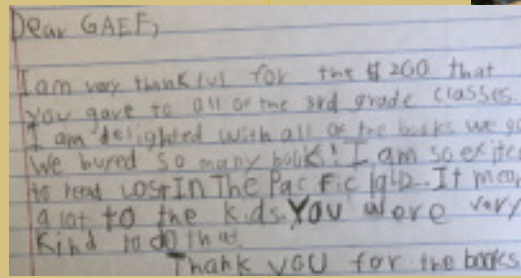 Dear GAEF,
I am very thankful for the $200 that
you gave to all of the 3rd grade classes.
I am delighted with all of the books we go
We bured so many book! I am so exite
to read Lost In The Pacific 1942. It mea
a lot to the kids. You were very
Kind to do that.
Thank you for the books